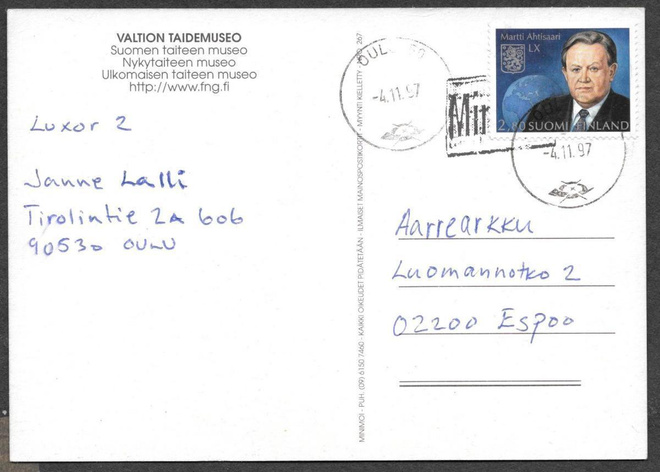 VALTION TAIDEMUSEO
Suomen taiteen museo
Nykytaiteen museo
Ulkomaisen taiteen museo
http://www.fng.fi
Luxor 2
Janne Lalli
Tirolintie 2A 606
90530 OULU
MINIMOI - PUH. (09) 6150 7460 - KAIKKI OIKEUDET PIDÄTETÄÄN - ILMAISET MAINOSPOSTIKORTIT - MYYNTI KIELLETTY 267
-4.11.97
Martti Ahtisaari
LX
2,80 SUOMI FINLAND
-4.11.97
Aarrearkku
Luomannotko 2
02200 Espoo